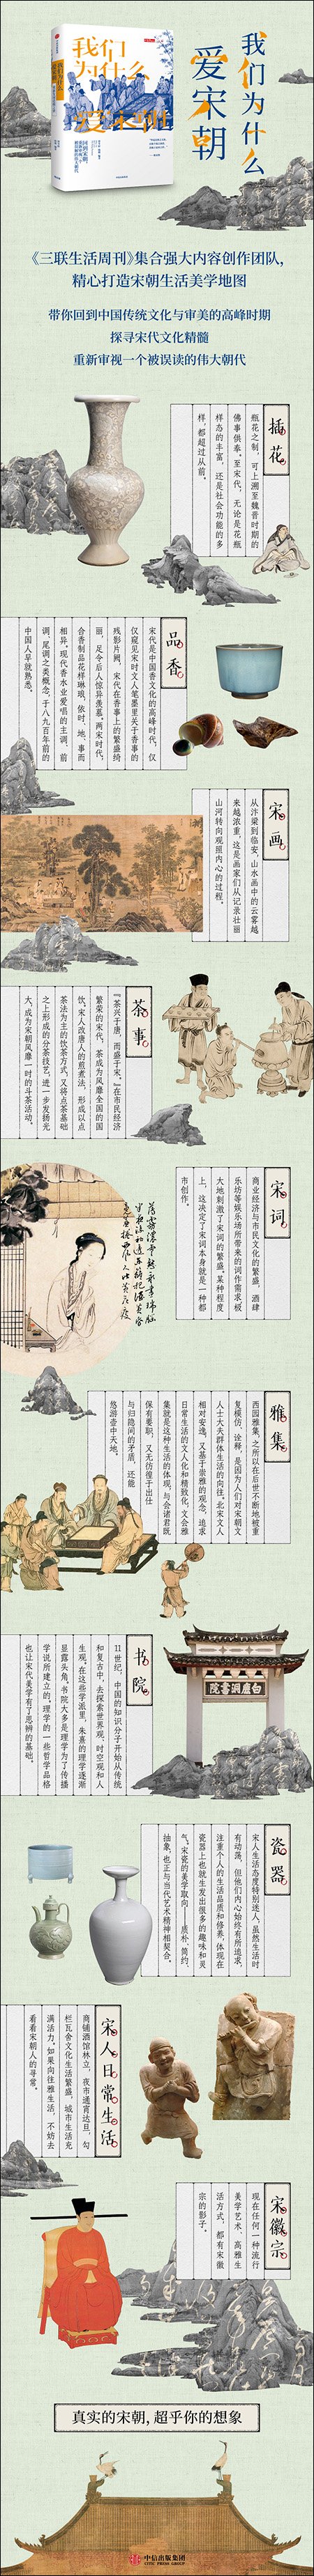 我们为什么
爱宋朝
我们
为什么
爱宋朝
《三联生活周刊》集合强大内容创作团队，
精心打造宋朝生活美学地图
带你回到中国传统文化与审美的高峰时期
探寻宋代文化精髓
重新审视一个被误读的伟大朝代
插花
瓶花之制，可上溯至魏晋时期的
佛事供奉。至宋代，无论是花瓶
样态的丰富，还是社会功能的多
样，都超过从前。
品香
宋代是中国香文化的高峰时代，仅
仅窥见宋时文人笔墨里关于香事的
残影片阙，宋代在香事上的繁盛绮
丽，足令后人惊异羡慕。两宋时代，
合香制品花样琳琅，依时、地、事而
相异。现代香水业爱唱的主调、前
调、尾调之类概念，于八九百年前的
中国人早就熟悉。
宋画
从汴梁到临安，山水画中的云雾越
来越浓重，这是画家们从记录壮丽
山河转向观照内心的过程。
茶事
“茶兴于唐，而盛于宋。”在市民经济
繁荣的宋代，茶成为风靡全国的国
饮。宋人改唐人的煎煮法，形成以点
茶法为主的饮茶方式，又将点茶基础
之上形成的分茶技艺，进一步发扬光
大，成为宋朝风靡一时的斗茶活动。
宋词
商业经济与市民文化的繁盛，酒肆
乐坊等娱乐场所带来的词作需求极
大地刺激了宋词的繁盛。某种程度
上，这决定了宋词本身就是一种都
市创作。
雅集
西园雅集，之所以在后世不断地被重
复模仿、诠释，是因为人们对宋朝文
人士大夫群体生活的向往。北宋文人
相对安逸，又基于崇雅的观念，追求
日常生活的文人化和精致化，文会雅
集就是这种生活的体现，与会诸君既
保有要职，又无彷徨于出仕
与归隐间的矛盾，还能
悠游壶中天地。
书院
11世纪，中国的知识分子开始从传统
和复古中，去探索世界观、时空观和人
生观。在这些学派里，朱熹的理学逐渐
显露头角。书院大多是理学为了传播
学说所建立的，理学的一些哲学品格
也让宋代美学有了思辨的基础。
白鹿洞書院
瓷器
宋人生活态度特别迷人，虽然生活时
有动荡，但他们内心始终有所追求，
注重个人的生活品质和修养，体现在
瓷器上也就生发出很多的趣味和灵
气。宋瓷的美学取向——质朴、简约、
抽象，也正与当代艺术精神相契合。
宋人日常生活
商铺酒馆林立，夜市通宵达旦，勾
栏瓦舍文化生活繁盛，城市生活充
满活力。如果向往雅生活，不妨去
看看宋朝人的寻常。
宋徽宗
现在任何一种流行
美学艺术、高雅生
活方式，都有宋徽
宗的影子。
真实的宋朝，超乎你的想象
中信出版集团
CITIC PRESS GROUP